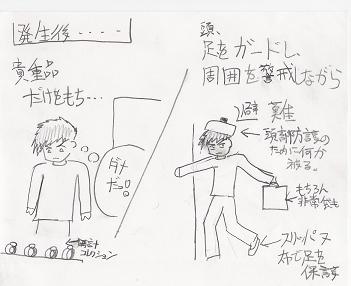 発生後・・・・・
貴重品
だけをもち・・・
ダメだっ!!
腕時計
コレクション
頭、
足をガードし、
周囲を警戒しながら
避難
頭部防護の
ために何か
被る。
もちろん
非常袋も
スリッパヌ
布で足を
保護